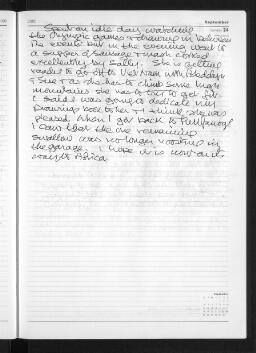 September
24
Spent an idle day watching
the Olympic games & drawing in between
the events but in the evening went to
a supper of sausage & mash cooked
excellently by Sally. She is getting
ready to go off to Vietnam with
& Sue & as she has to climb some high
mountains she has to try to get fit.
I said I was going to dedicate my
Drawings book to her & I think she was
pleased. When I got back to
I saw that the one remaining
swallow was no longer roosting in
the garage. I hope it is now on its
way to Africa